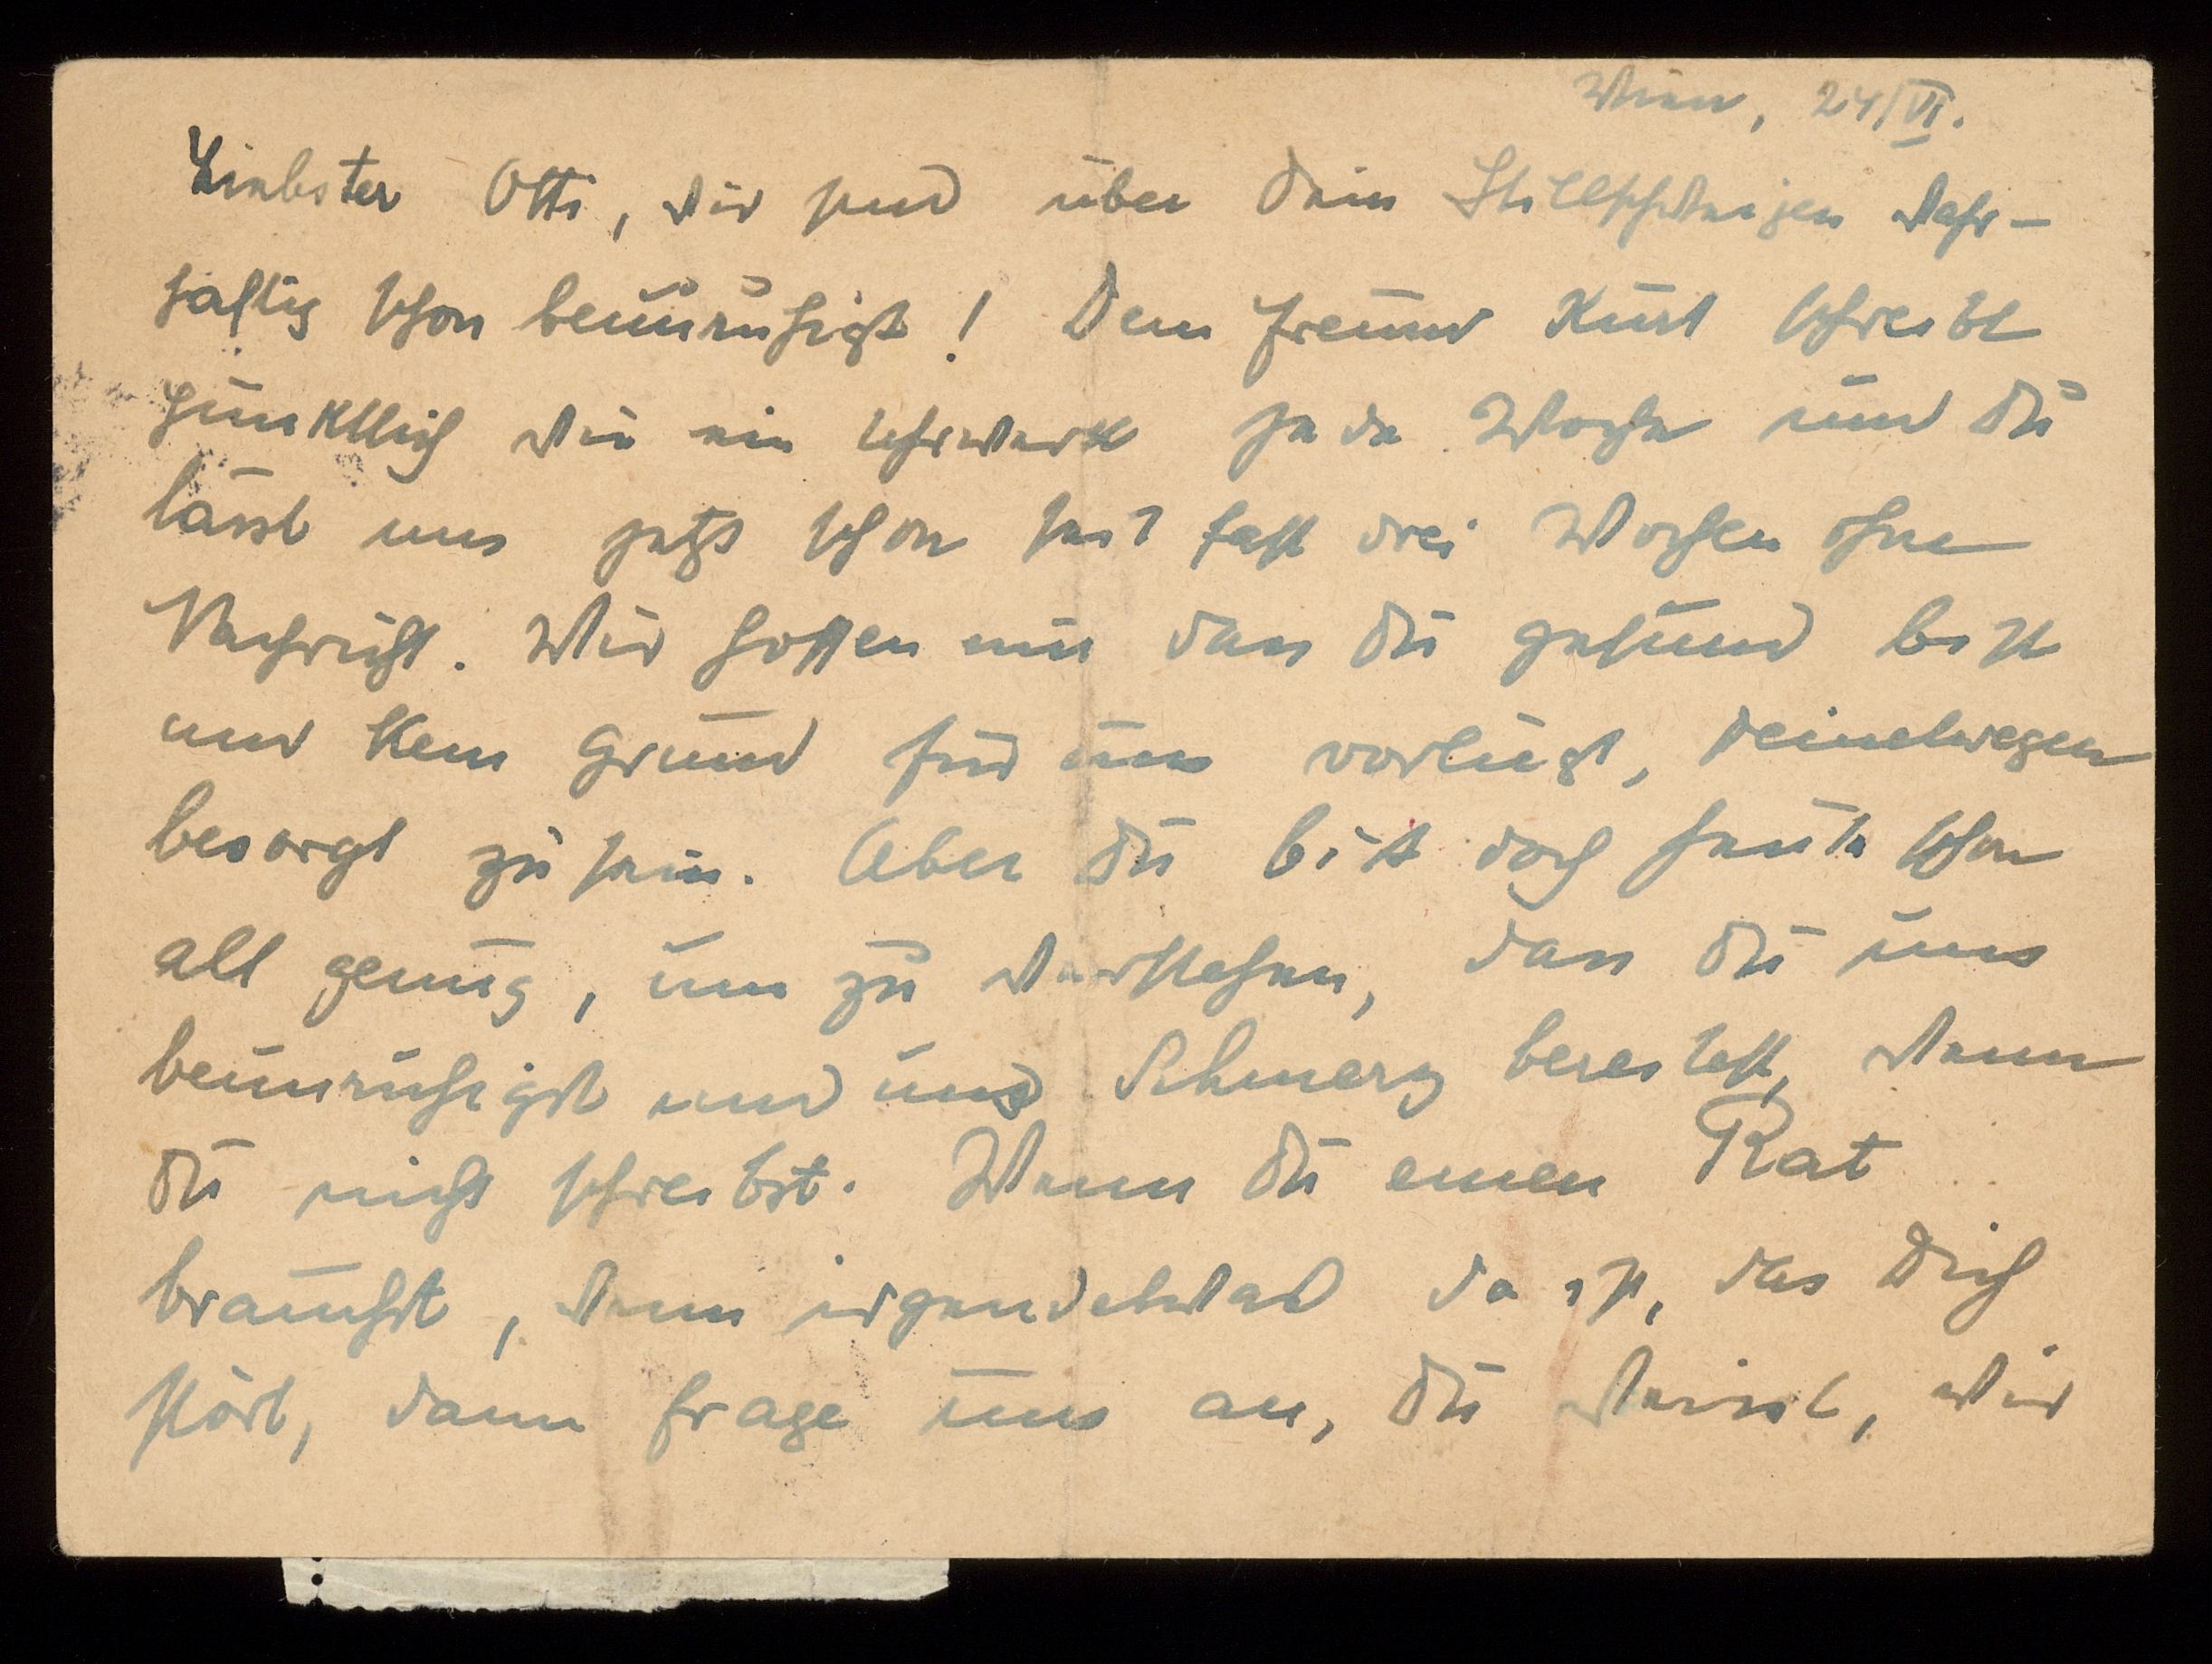 Wien, 24/VI.
Liebster Otti, wir sind über dein Stillschweigen wahr-
haftig schon beunruhigt! Dein Freund Kurt schreibt
pünktlich wie ein Uhrwerk jede Woche und Du
lässt uns jetzt schon seit fast drei Wochen ohne
Nachricht. Wir hoffen nur dass Du gesund bist
und kein Grund für uns vorliegt, Deinetwegen
besorgt zu sein. Aber Du bist doch heute schon
alt genug, um zu verstehen, dass Du uns
beunruhigst und uns Schmerz bereitest, wenn
Du nicht schreibst. Wenn Du einen Rat
brauchst, wenn irgendetwas da ist, das Dich
stört, dann frage uns an, Du weisst, wir